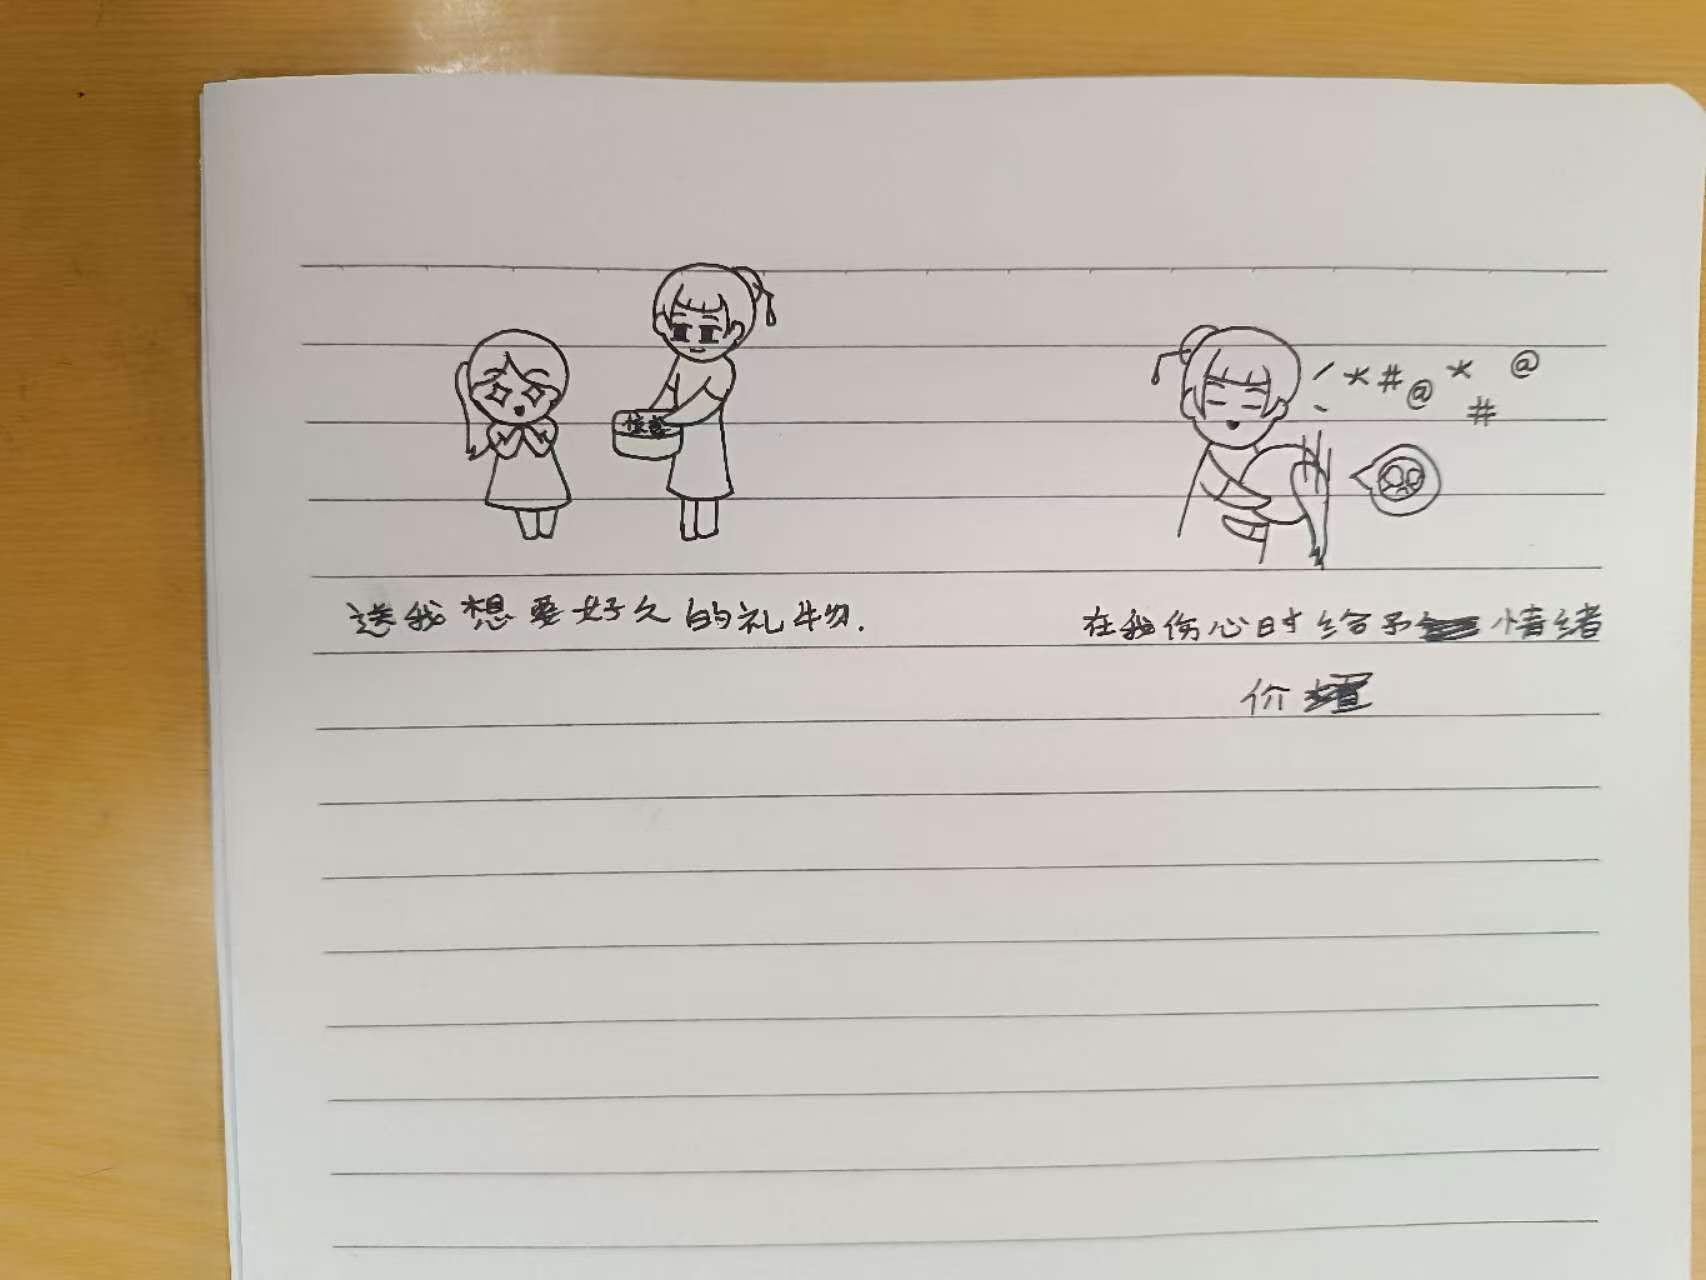 惊喜
*#@*@
#
送我想要好久的礼物.
在我伤心时给予情绪
价值